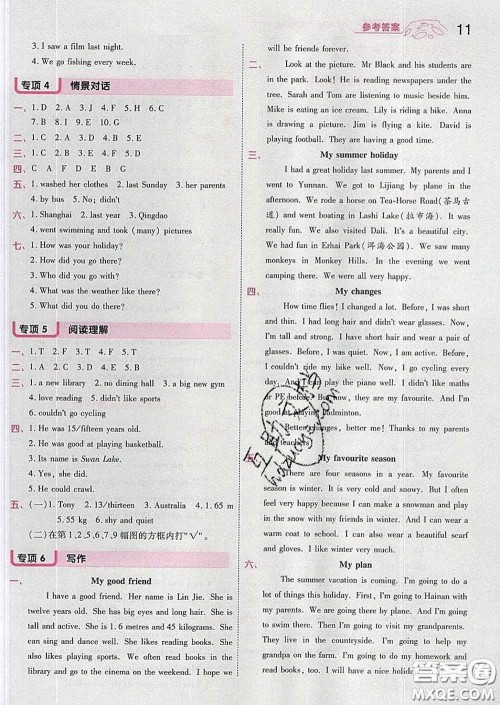 参考答案
11
3. I saw a film last night.
4. We go fishing every week.
专项 4 情景对话
一、1. D 2. A 3. J 4. F 5. H 6. C
7. B 8. I 9. E 10. G
二、1. D 2. A 3. F 4. E 5. C
三、1. B 2. D 3. F 4. G 5. E
四、C A F D E B G
五、1. washed her clothes 2. last Sunday 3. her parents
4. by bus 5. No; didn't
六、1. Shanghai 2. last year 3. Qingdao
4. went swimming and took (many) pictures
七、1. How was your holiday?
2. How did you go there?
3. Who did you go with?
4. What was the weather like there?
5. What did you do there?
专项 5 阅读理解
一、1. T 2. F 3. F 4. T 5. T
二、1. A 2. C 3. C 4. B 5. C
三、1. a new library 2. no dining hall 3. a big new gym
4. love reading 5. didn't like stories
6. couldn't go cycling
四、1. He was 15/fifteen years old.
2. He was good at playing basketball.
3. Its name is Swan Lake.
4. Yes, she did.
5. He could crawl.
五、(一)1. Tony 2. 13/thirteen 3. Australia 4. 1.65 m
5. 55 kg 6. shy and quiet
(二)在第 1,2,5,6,7,9 幅图的方框内打"√"。
专项 6 写作
一、
My good friend
I have a good friend. Her name is Lin Jie. She is
twelve years old. She has big eyes and long hair. She is
tall and thin. She is 1. 6 metres and 45 kilograms. She
can sing and dance. She likes reading books. She
also likes playing sports. We often read books in the
library and go to the cinema on the weekend. I hope we
will be friends forever.
二、
Look at the picture. Mr Black and his students
are in the park. Look! He is reading newspapers under the
tree. Sarah and Tom are listening to music. Amy and
Mike is eating an ice cream. Lily is riding a bike. Anna
is drawing a picture. Jim is flying a kite. David is
playing football. They are having a good time.
三、
My summer holiday
I had a great holiday last summer. My parents and I
went to Yunnan. We got to Lijiang by plane in the
afternoon. We rode a horse on Tea-Horse Road(茶马古
道) and went boating in Lashi Lake(拉市海). It was
really fun. We also visited Dali. It's a beautiful city. We
had fun in Erhai Park (洱海公园). We saw many
monkeys in Monkey Hills. In the evening we went
camping there. We were all very happy.
四、
My changes
How time flies! I changed a lot. Before, I was short
and I had short hair. And I didn't wear glasses. Now,
I'm tall and strong. I have short hair and I wear glasses.
Before, I couldn't ride my bike well. Now I can ride it
very fast. I can play the piano well. I didn't like maths
or PE before. But now, they are my favourite. And I
am good at playing badminton.
Better changes, better me! Thanks to my parents
and teachers.
My favourite season
There are four seasons in a year. My favourite
season is winter. Because it's cold and it often snows. I
feel very happy because I can make a snowman and
have a snowball fight. I can wear a warm hat and a
warm coat to school. I can also wear a beautiful
scarf and gloves. I like winter very much.
六、
My plan
The summer vacation is coming. I'm going to do a
lot of things this holiday. I'm going to Hainan with my
parents. We are going there by plane. Then we are
going to visit my grandparents. They
live in the countryside. I'm going to help my
grandpa on the farm. I'm going to do my homework and
read books, too. I will have a nice holiday.
答案圈
MXQE.COM